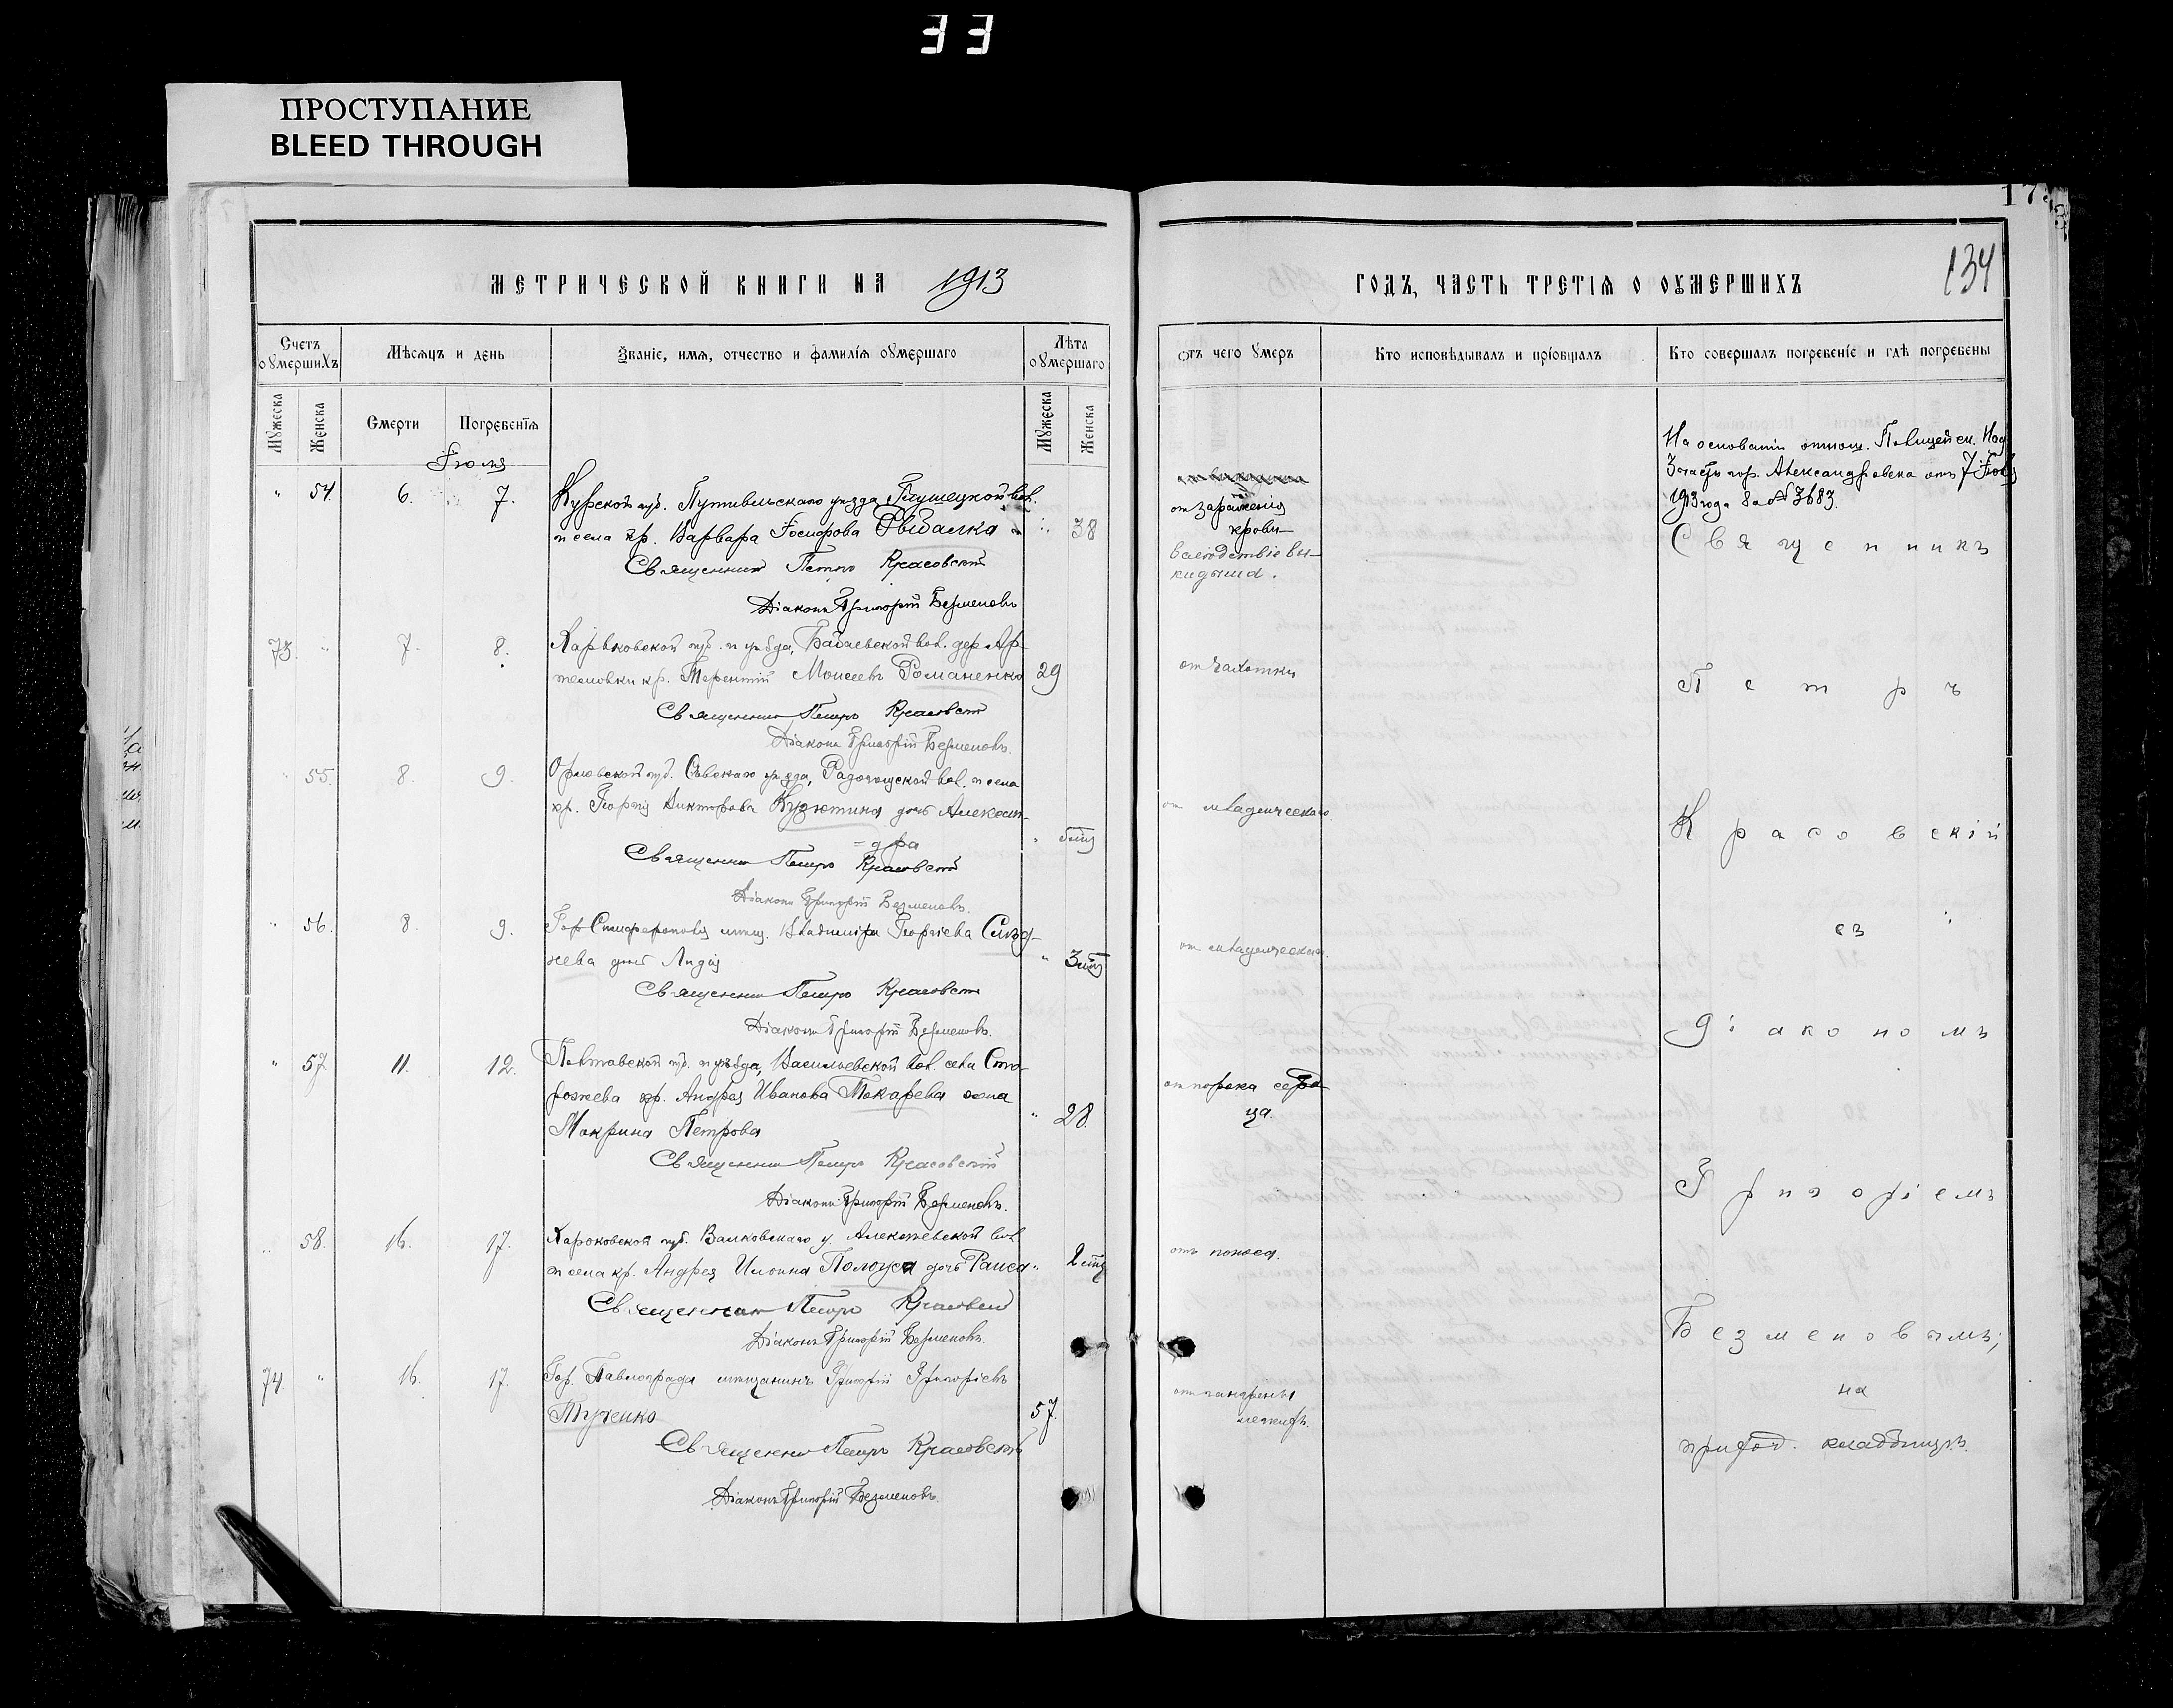 33
ПРОСТУПАНИЕ
BLEED THROUGH
173
134
МЕТРИЧЕСКОЙ КНИГИ НА 1913
ГОДЪ, ЧАСТЬ ТРЕТІЯ О ОУМЕРШИХЪ
Счетъ оумершихъ
Мѣсяцъ и день
Званіе, имя, отчество и фамилія оумершаго
Лѣта оумершаго
Отъ чего умеръ
Кто исповѣдывалъ и пріобщалъ
Кто совершалъ погребеніе и гдѣ погребены
Мужеска
Женска
Смерти
Погребенія
Мужеска
Женска
Іюля
На основаніи отнош. Полицейск. Над
3 части гор. Александровска отъ 7 Іюля
1913 года за № 3683.
" 54. 6. 7. Курской губ. Путивльскаго уѣзда вол.
и села кр. Варвара Іосифова Рыбалка 38
отъ зараженія
крови
вслѣдствіе вы-
кидыша.
Священникъ
Священникъ Петръ Красовскій
Діаконъ Григорій Безменовъ
73. " 7. 8. Харьковской губ. и уѣзда, Бабаевской вол. дер. Ар-
темовки кр. Терентій Моисеевъ Романенко 29
отъ чахотки
Петръ
Священникъ Петръ Красовскій
Діаконъ Григорій Безменовъ.
" 55. 8. 9. Орловской губ. Сѣвскаго уѣзда, Радогощской вол. и села
кр. Георгія Викторова дочь Алексан-
=дра
отъ младенческаго
Красовскій
Священникъ Петръ Красовскій
Діаконъ Григорій Безменовъ.
" 56. 8. 9. Гор. Симферополя мѣщ. Владиміра Георгіева
дочь Лидія " 3 мѣс
отъ младенческаго.
съ
Священникъ Петръ Красовскій
Діаконъ Григорій Безменовъ.
діакономъ
" 57. 11. 12. Полтавской губ. и уѣзда, Васильевской вол. села Сто-
рожева кр. Андрея Иванова Токарева жена
Макрина Петрова " 28.
отъ порока серд-
ца.
Священникъ Петръ Красовскій
Діаконъ Григорій Безменовъ.
Григоріемъ
" 58. 16. 17. Харьковской губ. Валковскаго у. Алексѣевской вол.
и села кр. Андрея Ильина дочь Раиса " 2 мѣс
отъ поноса.
Священникъ Петръ Красовскій
Діаконъ Григорій Безменовъ.
Безменовымъ;
74. " 16. 17. Гор. Павлограда мѣщанинъ Григорій Григорьевъ
57.
отъ гангрены
легкихъ.
на
приход. кладбищѣ.
Священникъ Петръ Красовскій
Діаконъ Григорій Безменовъ.